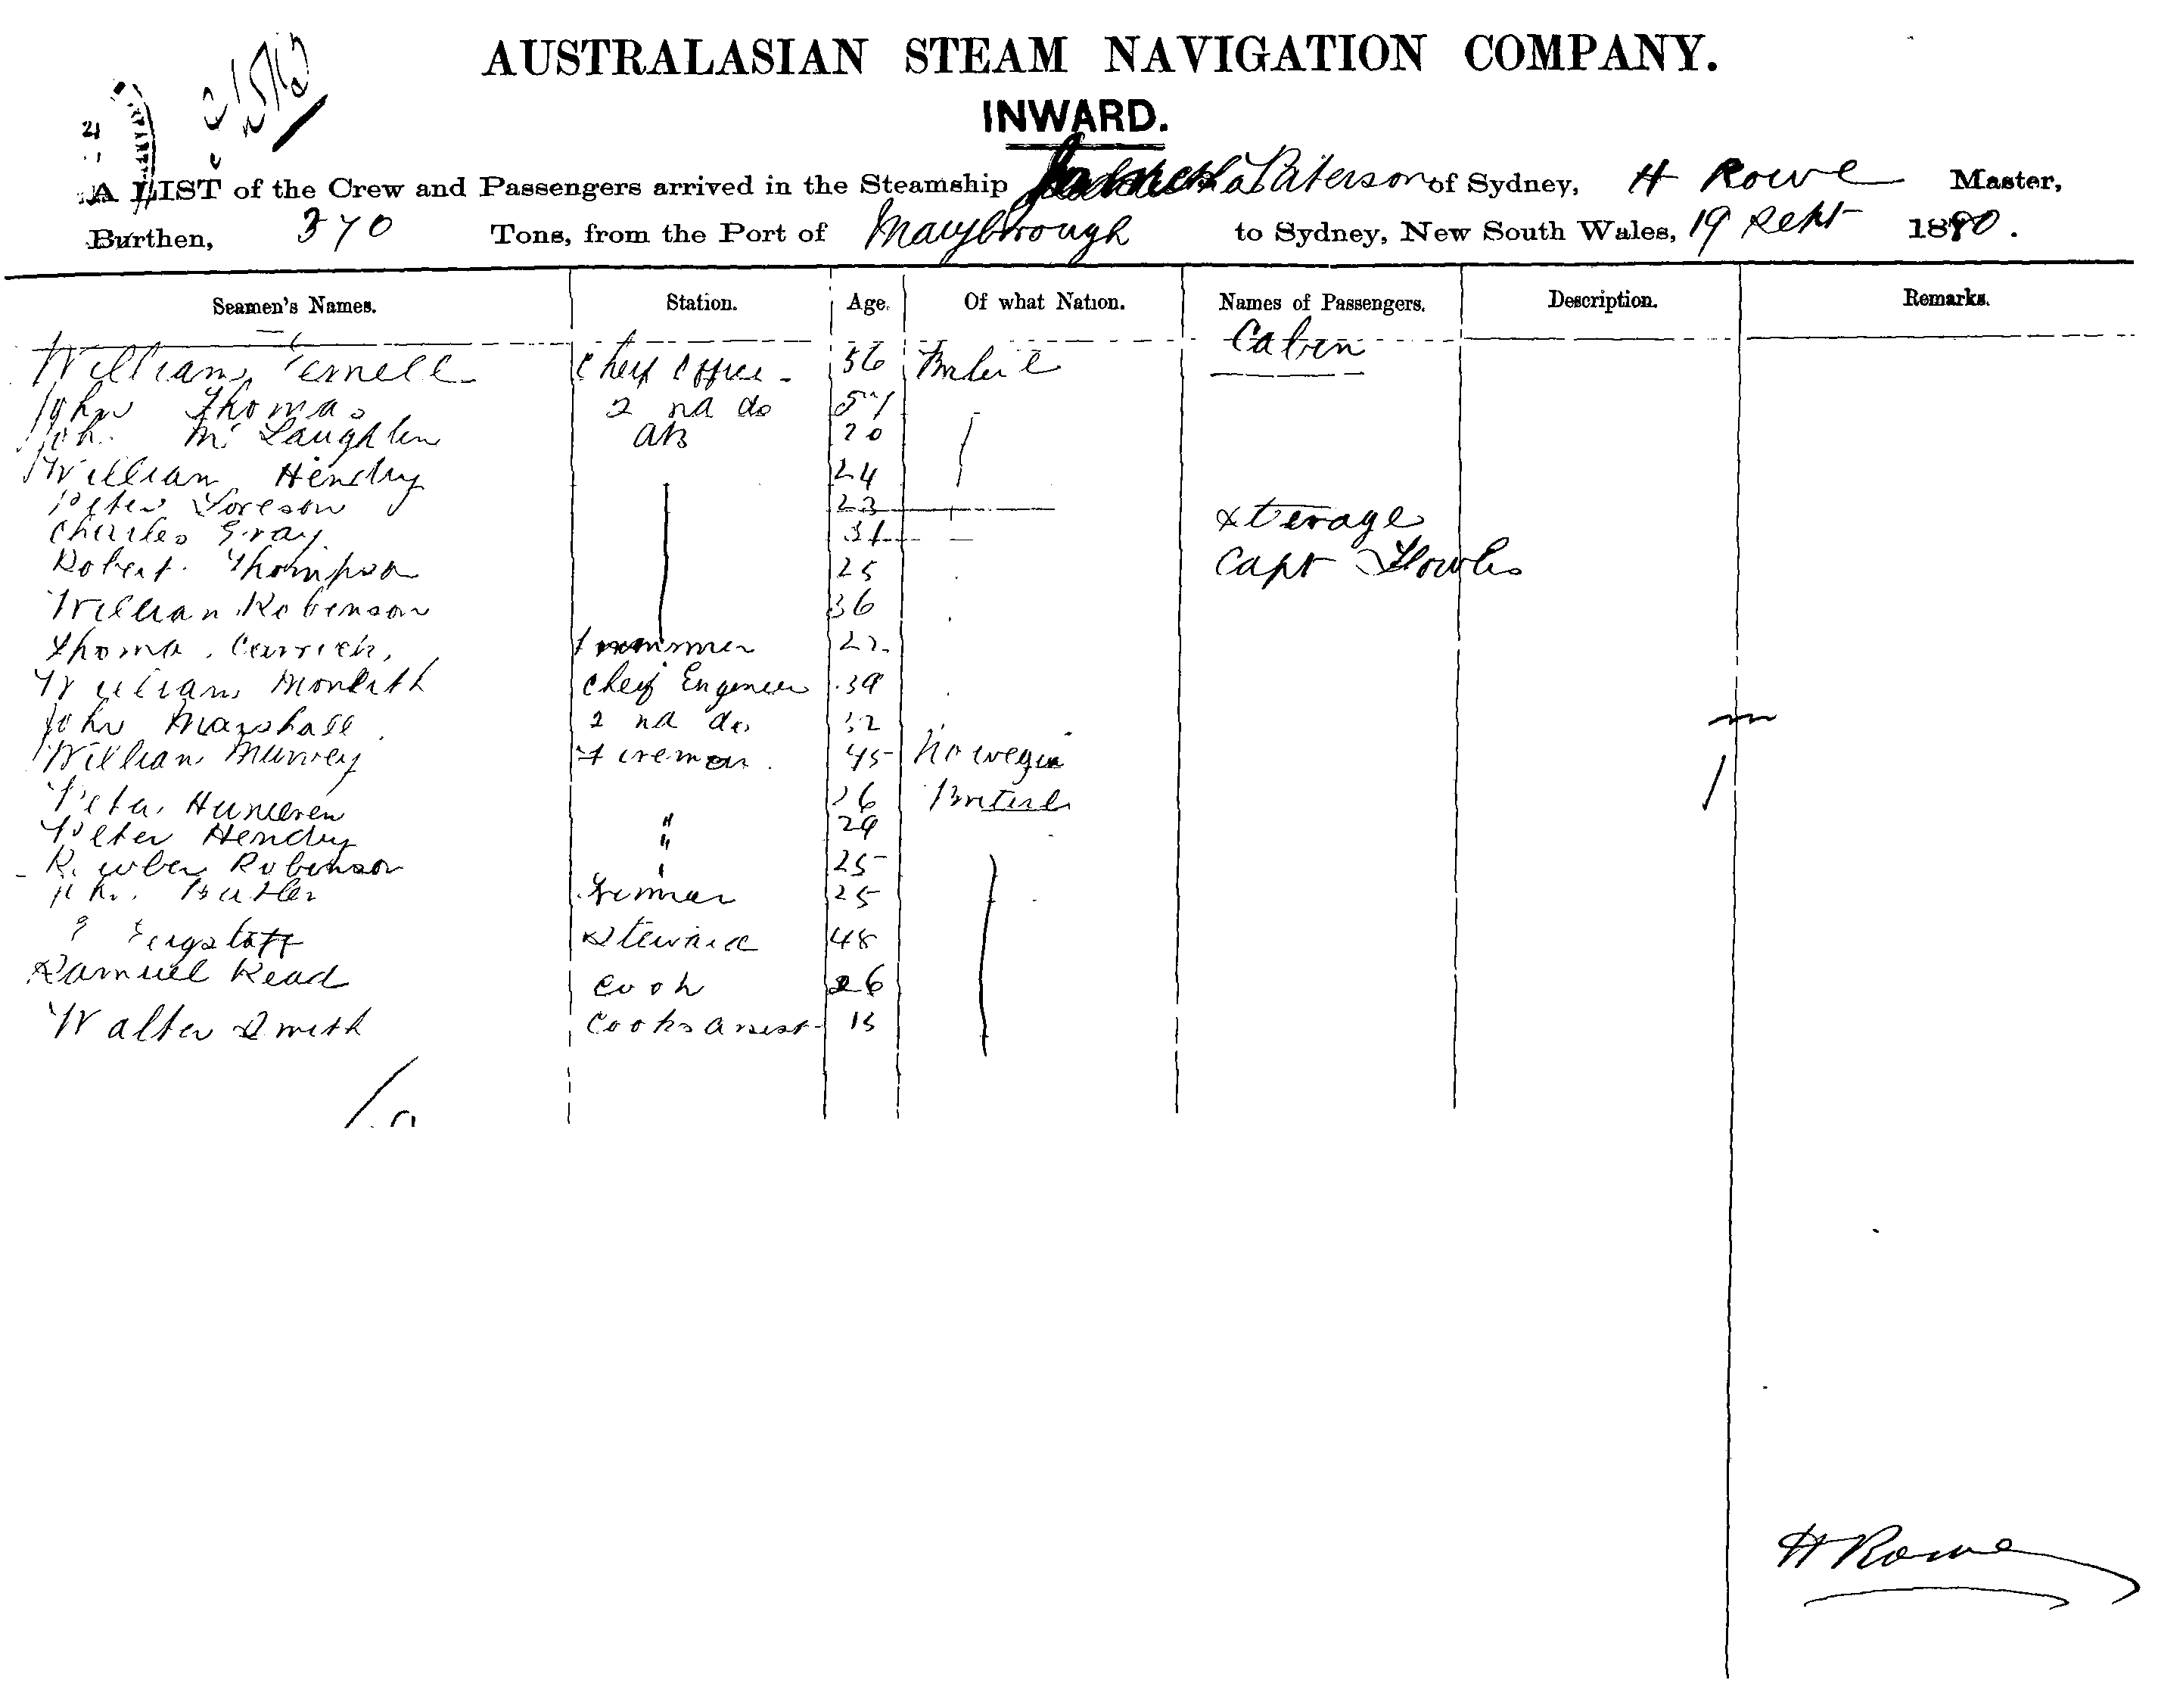 AUSTRALASIAN STEAM NAVIGATION COMPANY.
INWARD.
A LIST of the Crew and Passengers arrived in the Steamship Paterson of Sydney, H Rowe Master,
Burthen, 370 Tons, from the Port of Maryborough to Sydney, New South Wales, 19 Sept 1880.
Seamen's Names. Station. Age. Of what Nation. Names of Passengers. Description. Remarks.
Cabin
William Cheif Officer 56
John Thomas 2 nd do
Joh. Mc Laughlin AB 20
William Hendry 24
Peter 23
Charles Gray 31
Sterage
Robert Thompson 25 Capt Fowles
William Robinson 36
Thomas Carrick 22
William Monlith Cheif Engineer 39
John Marshall 2 nd do 32
William Murrey Fireman 45 Norwegin
Peter 26 British
Peter Hendry " 29
Robinson " 25
Jhn. Butler Trimmer 25
Steward 48
Samuel Read Cook 26
Walter Smith Cooks assist 15
H Rowe